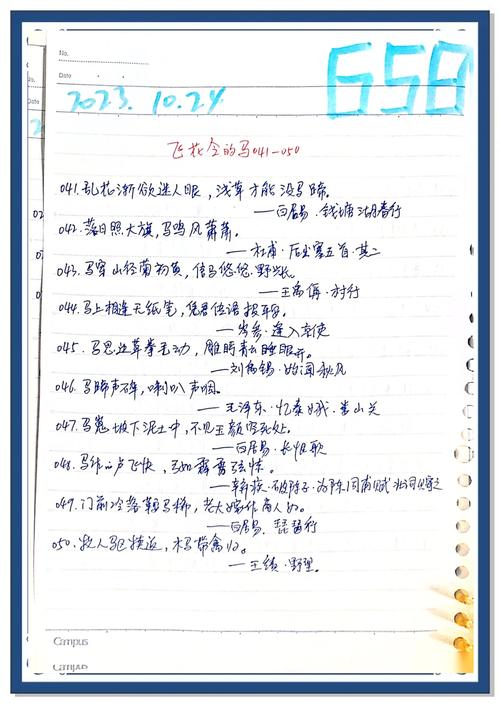 No.
Date
658
2023. 10.24
飞花令的马041-050
041.乱花渐欲迷人眼,浅草才能没马蹄。
—白居易·钱塘湖春行
042.落日照大旗,马鸣风萧萧。
—杜甫·后出塞五首·其二
043.马穿山径菊初黄,信马悠悠野兴长。
—王禹偁·村行
044.马上相逢无纸笔,凭君传语报平安。
—岑参·逢入京使
045.马思边草拳毛动,雕眄青云睡眼开。
—刘禹锡·始闻秋风
046.马蹄声碎,喇叭声咽。
—毛泽东·忆秦娥·娄山关
047.马嵬坡下泥土中,不见玉颜空死处。
—白居易·长恨歌
048.马作的卢飞快,弓如霹雳弦惊。
—辛弃疾·破阵子·为陈同甫赋壮词以寄之
049.门前冷落鞍马稀,老大嫁作商人妇。
—白居易·琵琶行
050.牧人驱犊返,猎马带禽归。
—王绩·野望。
Campus
Campus